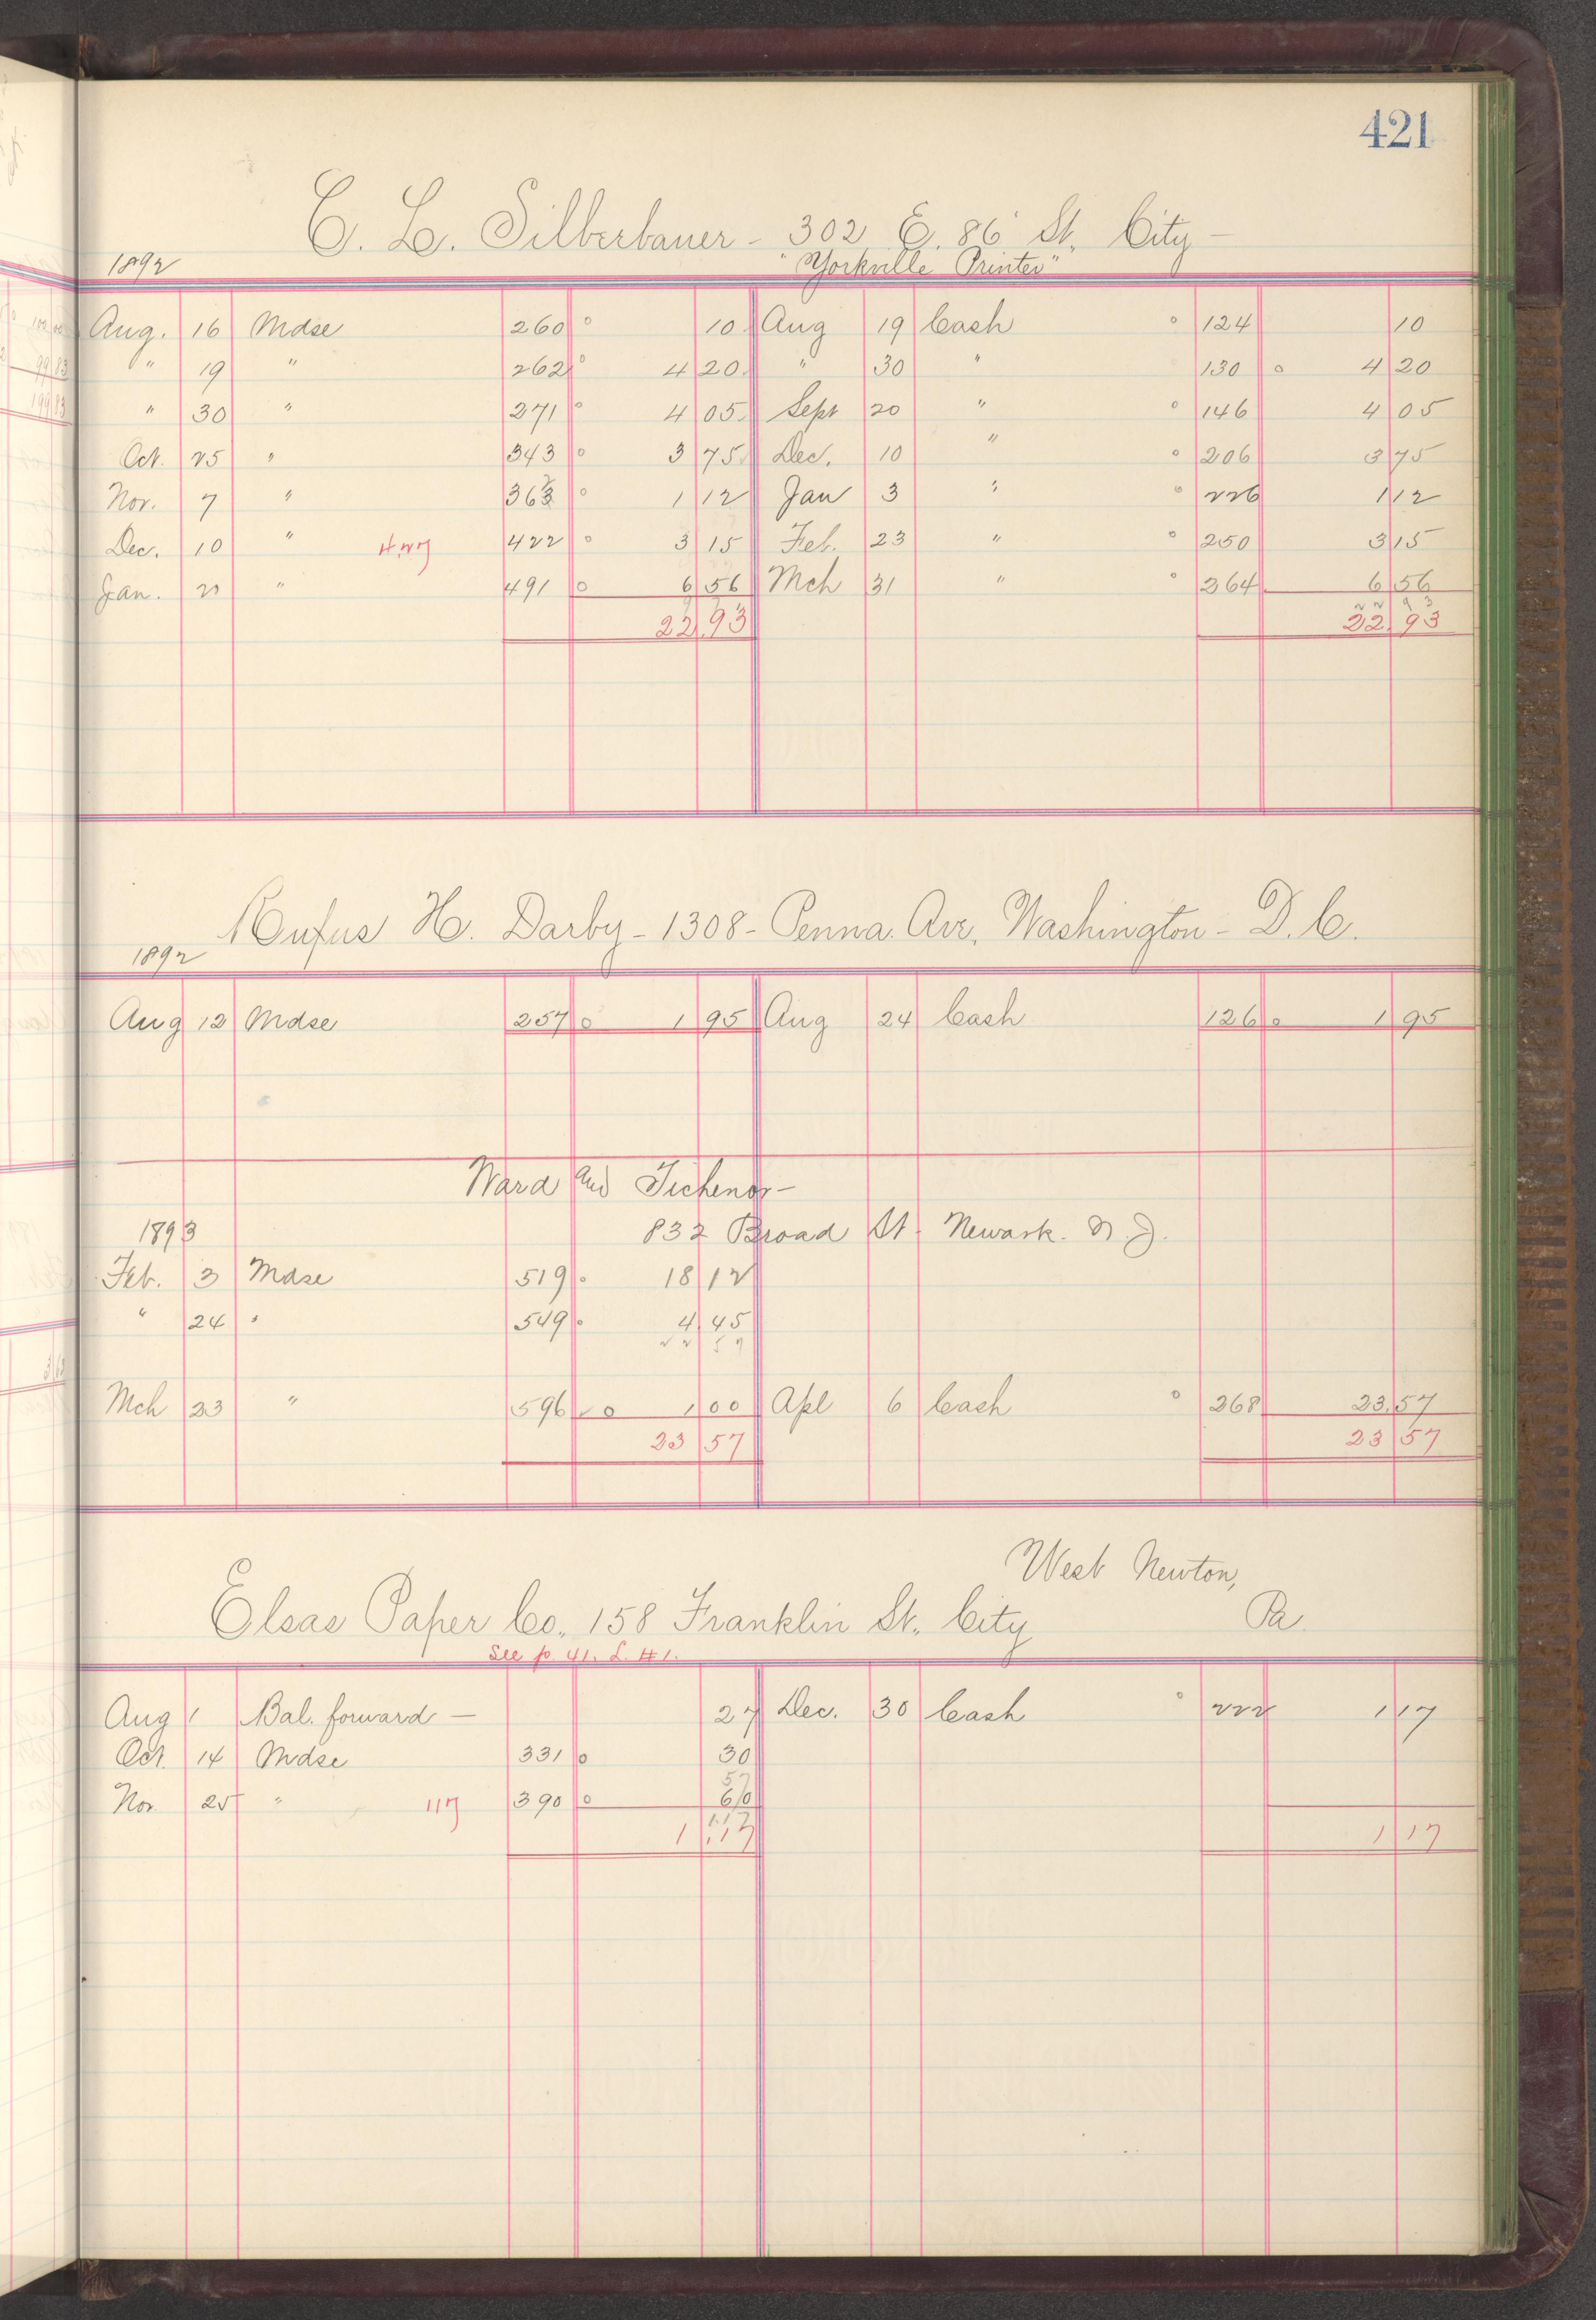 421
C. L. Silberbauer - 302 E. 86 St. City -
1892 "Yorkville Printer"
Aug. 16 Mdse 260 10 Aug 19 Cash 124 10
" 19 " 262 4 20 " 30 " 130 4 20
" 30 " 271 4 05 Sept 20 " 146 4 05
Oct. 25 " 343 3 75 Dec. 10 " 206 3 75
Nov. 7 " 363 1 12 Jan 3 " 226 1 12
Dec. 10 " 422 3 15 Feb. 23 " 250 3 15
Jan. " 491 6 56 Mch 31 " 264 6 56
22 93
22.93 22.93
Rufus H. Darby - 1308 - Penna. Ave. Washington - D.C.
1892
Aug 12 Mdse 257 1 95 Aug 24 Cash 126 1 95
Ward and Tichenor -
1893 832 Broad St. Newark. N.J.
Feb. 3 Mdse 519 18 12
" 24 " 549 4 45
22 57
Mch 23 " 596 1 00 Apl 6 Cash 268 23.57
23 57 23 57
West Newton,
Elsas Paper Co., 158 Franklin St. City Pa
See p. 41. L. #1.
Aug 1 Bal. forward - 27 Dec. 30 Cash 222 1 17
Oct. 14 Mdse 331 30
57
Nov. 25 " 117 390 60
1.17
1.17 1 17